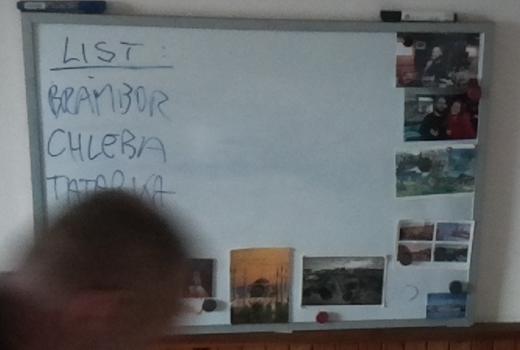 LIST:
BRAMBOR
CHLEBA
TATARKA